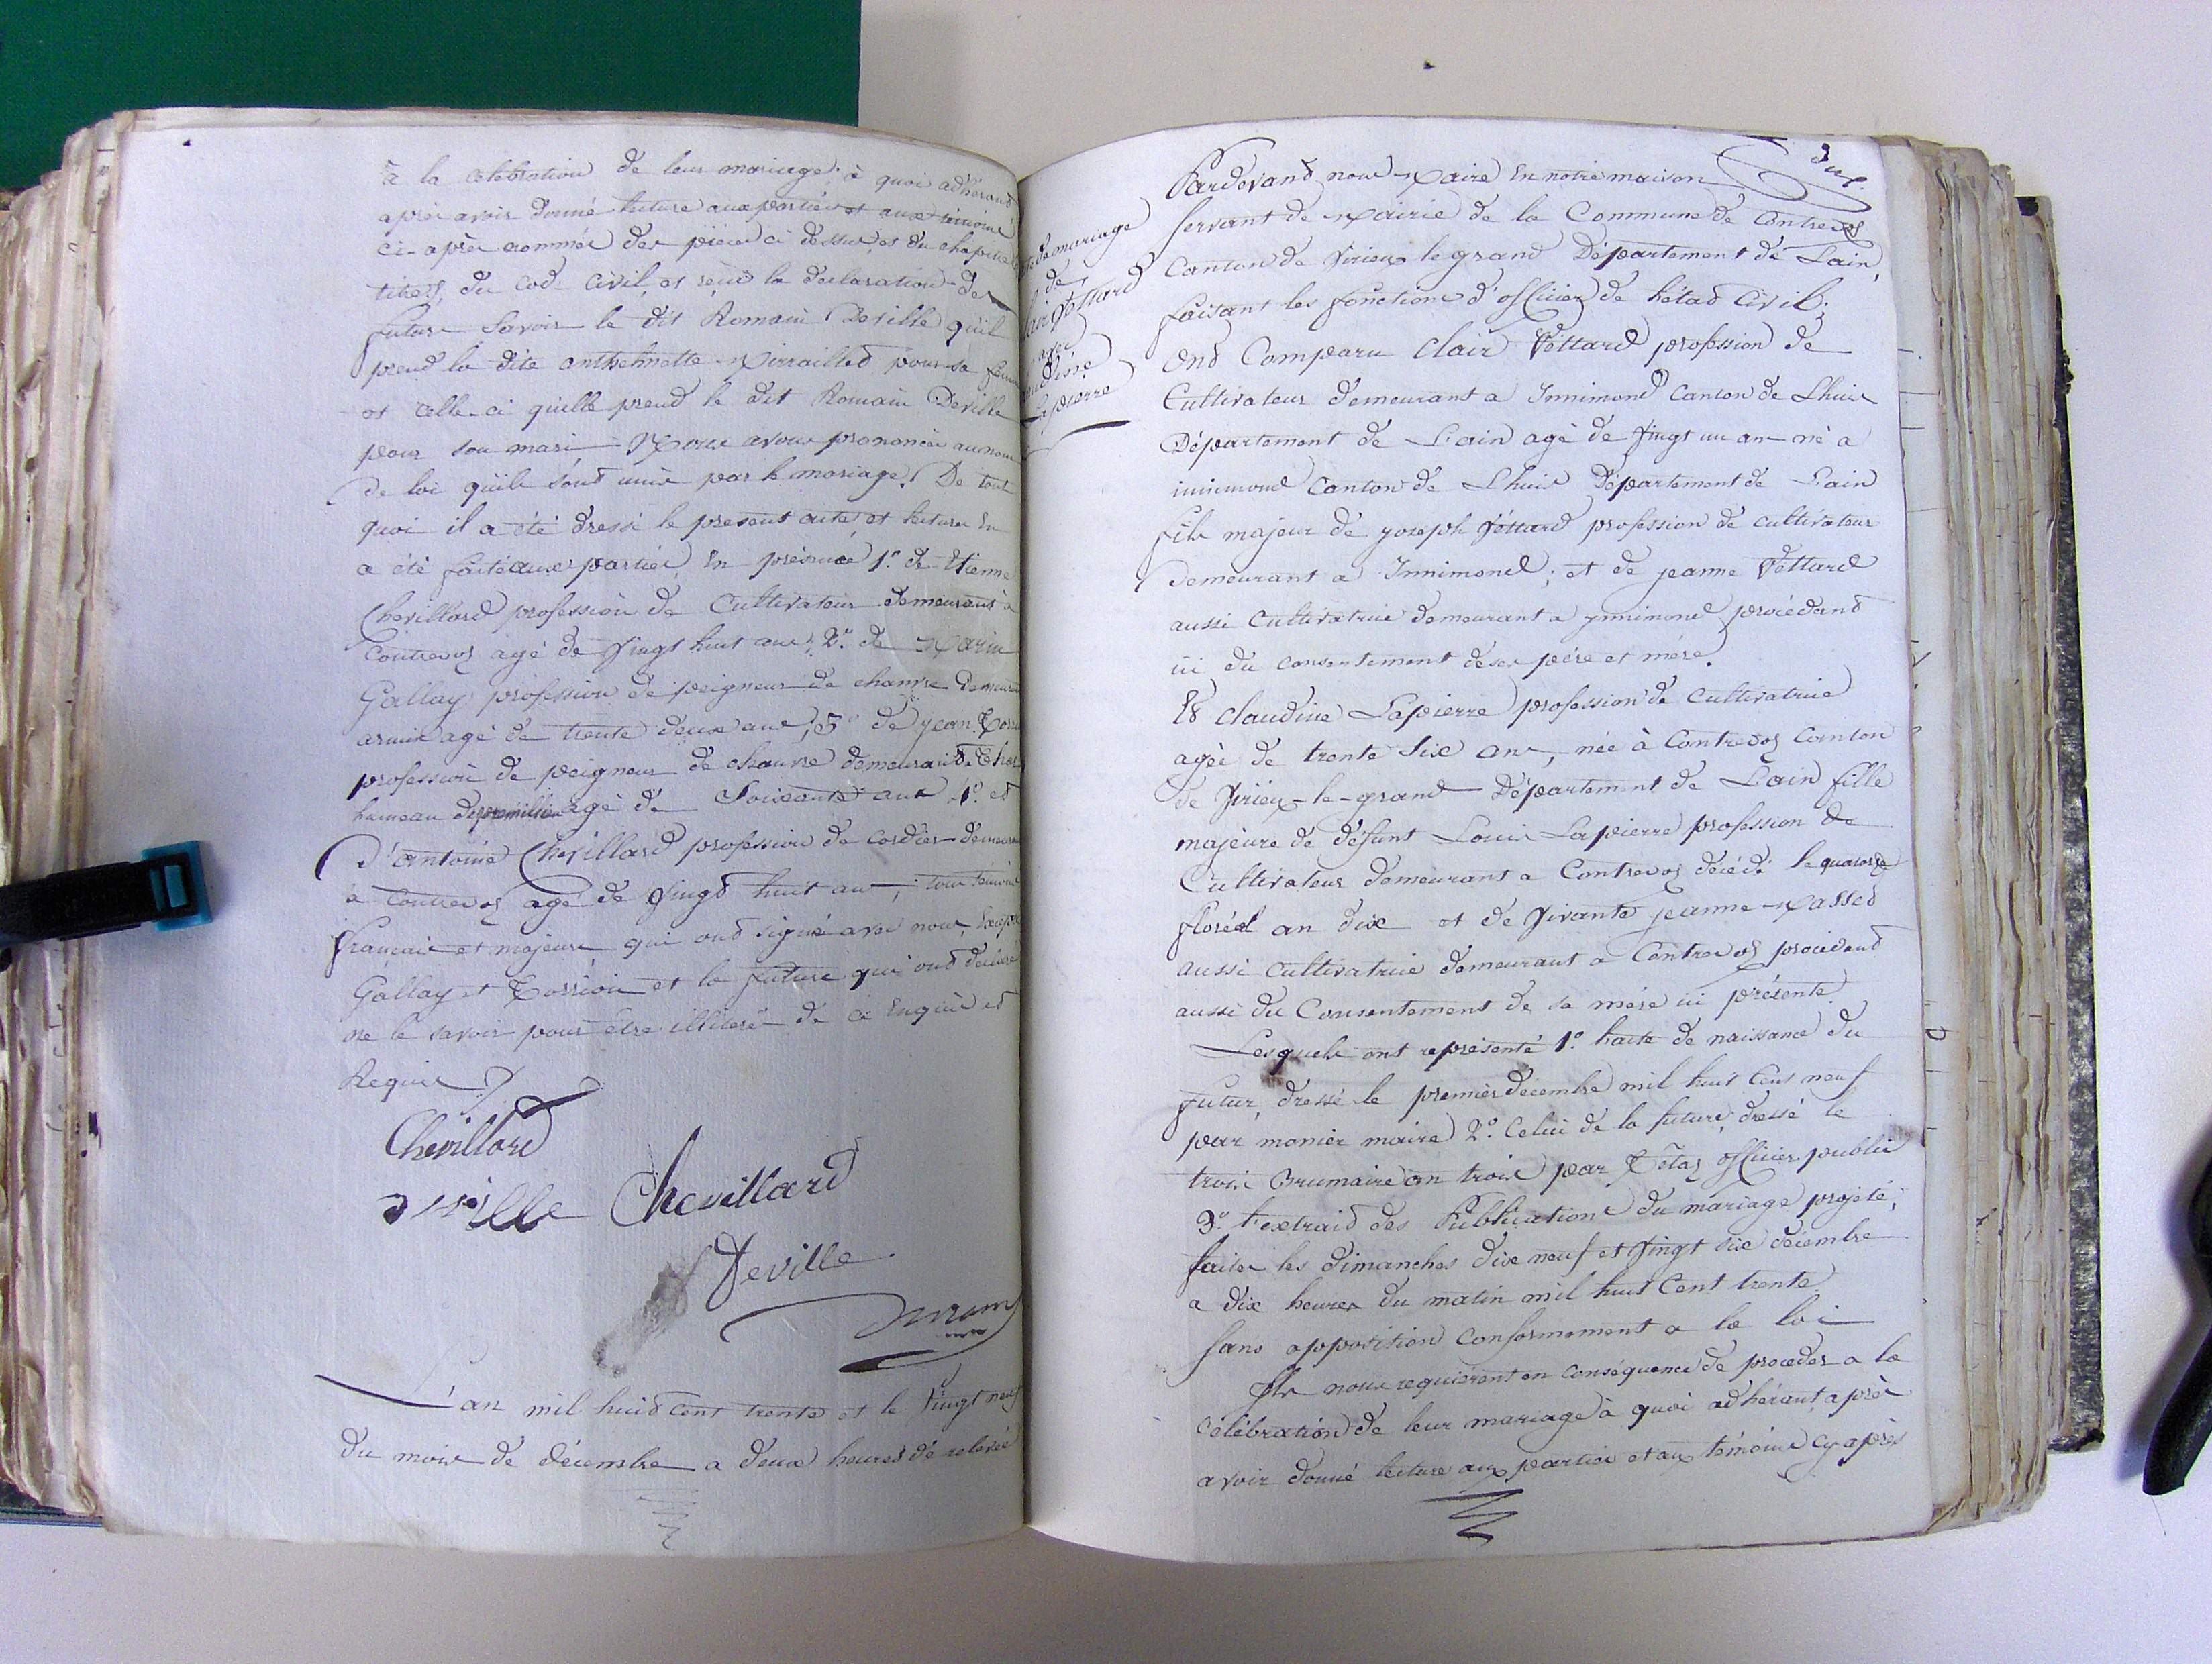 à la célébration de leur mariage; à quoi adhérant
après avoir donné lecture aux parties et aux témoins
ci-après nommés des pièces ci dessus, et du chapitre
titre du code civil, et reçu la déclaration des
futurs savoir le dit Romain Deville qu'il
prend la dite anthelmette Mirraillet pour sa femme
et celle-ci qu'elle prend le dit Romain Deville
pour son mari Nous avons prononcée au nom
de loi qu'ils sont unis par le mariage. De tout
quoi il a été dressé le présent acte et lecture en
a été faite aux parties, En présence 1.° de Etienne
Chevillard profession de Cultivateur demeurant à
Contrevoz agé de vingt huit ans; 2.° de Marin
Gallay profession de peigneur de chanvre demeurant
armix agé de trente deux ans; 3° de jean
profession de peigneur de chanvre demeurant
hameau de agé de soixante ans 4.° et
d'antoine Chevillard profession de cordier demeurant
à Contrevoz agé de vingt huit ans; tous témoins
français et majeurs qui ont signé avec nous, Excepté
Gallay et et la future qui ont déclaré
ne le savoir pour être illitéré de ce Enquis et
Requis
Chevillard
Chevillard
Deville
L'an mil huit cent trente et le vingt neuf
du mois de décembre a deux heures de relevée
Pardevant nous Maire En notre maison
servant de Mairie de la Commune de Contrevoz
Canton de Virieux le grand Département de Lain,
faisant les fonctions d'officier de l'état civil;
Ont Comparu Clair Vettard profession de
Cultivateur demeurant a Innimond Canton de Lhuis
Département de Lain agé de vingt un an né a
innimond Canton de Lhuis Département de Lain
fils majeur de joseph Vettard profession de cultivateur
demeurant a Innimond; et de jeanne Vettard
aussi Cultivatrice demeurant a ynnimond procédant
ici du consentement de ses père et mère.
Et Claudine Lapierre profession de Cultivatrice
agée de trente six ans, née à Contrevoz Canton
de Virieux-le-grand Département de Lain fille
majeure de défunt Louis Lapierre profession de
Cultivateur demeurant a Contrevoz décédé le quatorze
floréal an dix et de vivante jeanne Masset
aussi Cultivatrice demeurant a Contrevoz procédant
aussi du Consentement de sa mère ici présente.
Lesquels ont représenté 1.° lacte de naissance du
futur, dressé le premier décembre mil huit Cent neuf
par monier maire 2.° Celui de la future, dressé le
trois Brumaire an trois par Tétaz officier public
3.° l'extrait des Publications du mariage projeté,
faites les dimanches dix neuf et vingt six décembre
a dix heures du matin mil huit Cent trente.
sans opposition conformement a la loi
Ils nous requièrent en conséquence de procéder a la
célébration de leur mariage à quoi adhérant après
avoir donné lecture aux parties et aux témoins cy après
de mariage
de
Clair Vettard
avec
Claudine
Lapierre